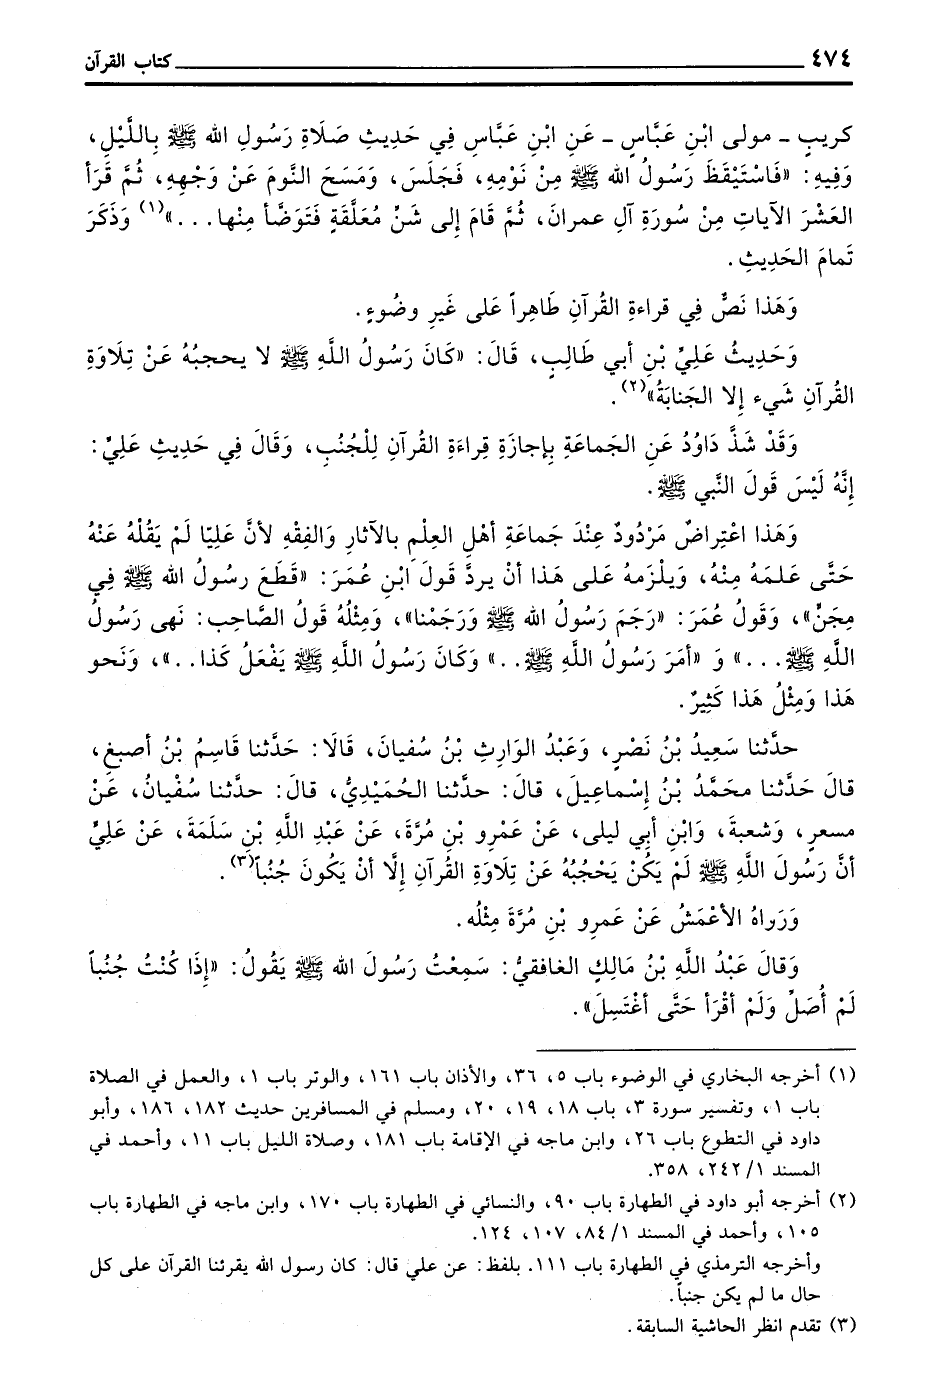 ٤٧٤ كتاب القرآن
كريبٍ ـ مولى ابْنِ عَبَّاسٍ ـ عَنِ ابْنِ عَبَّاسٍ فِي حَدِيثِ صَلَاةِ رَسُولِ الله ﷺ بِاللَّيْلِ،
وَفِيهِ: «فَاسْتَيْقَظَ رَسُولُ الله ﷺ مِنْ نَوْمِهِ، فَجَلَسَ، وَمَسَحَ النَّومَ عَنْ وَجْهِهِ، ثُمَّ قَرَأَ
العَشْرَ الآيَاتِ مِنْ سُورَةِ آلِ عمران، ثُمَّ قَامَ إِلى شَنٍّ مُعَلَّقَةٍ فَتَوَضَّأ مِنْها...»(١) وَذَكَرَ
تَمامَ الحَدِيثِ.
وَهَذا نَصٌّ فِي قراءةِ القُرآنِ طَاهِراً عَلى غَيرِ وضُوءٍ.
وَحَدِيثُ عَلِيِّ بْنِ أبي طَالِبٍ، قَالَ: «كَانَ رَسُولُ اللَّهِ ﷺ لا يحجبُهُ عَنْ تِلَاوَةِ
القُرآنِ شَيء إِلا الجَنابَةُ»(٢).
وَقَدْ شَذَّ دَاوُدُ عَنِ الجَماعَةِ بِإجازَةِ قِراءَةِ القُرآنِ لِلْجُنُبِ، وَقَالَ فِي حَدِيثِ عَلِيٍّ:
إِنَّهُ لَيْسَ قَولَ النَّبي ﷺ.
وَهَذا اعْتِراضٌ مَرْدُودٌ عِنْدَ جَماعَةِ أهْلِ العِلْمِ بالآثارِ وَالفِقْهِ لأنَّ عَلِيّا لَمْ يَقُلْهُ عَنْهُ
حَتَّى عَلمَهُ مِنْهُ، وَيلْزمهُ عَلى هَذا أنْ يردَّ قَولَ ابْنِ عُمَرَ: «قَطَعَ رسُولُ الله ﷺ فِي
مِجَنٍّ»، وَقَولُ عُمَرَ: «رَجَمَ رَسُولُ الله ﷺ وَرَجَمْنا»، وَمِثْلُهُ قَولُ الصَّاحِب: نَهى رَسُولُ
اللَّهِ ﷺ...» وَ «أمَرَ رَسُولُ اللَّهِ ﷺ..» وَكَانَ رَسُولُ اللَّهِ ﷺ يَفْعَلُ كَذا..»، وَنَحو
هَذا وَمِثْلُ هَذا كَثِيرٌ.
حدَّثنا سَعِيدُ بْنُ نَصْرٍ، وَعَبْدُ الوَارِثِ بْنُ سُفيانَ، قَالَا: حَدَّثنا قَاسِمُ بْنُ أصبغِ،
قالَ حَدَّثنا محَمَّدُ بْنُ إِسْماعِيلَ، قالَ: حدَّثنا الحُمَيْدِيُّ، قالَ: حدَّثنا سُفْيانُ، عَنْ
مسعرٍ، وَشعبةَ، وَابْنِ أبي ليلى، عَنْ عَمْرِو بْنِ مُرَّةَ، عَنْ عَبْدِ اللَّهِ بْنِ سَلَمَةَ، عَنْ عَلِيٍّ
أنَّ رَسُولَ اللَّهِ ﷺ لَمْ يَكُنْ يَحْجُبُهُ عَنْ تِلَاوَةِ القُرآنِ إِلَّا أنْ يَكُونَ جُنُباً(٣).
وَرَراهُ الأَعْمَشُ عَنْ عَمرِو بْنِ مُرَّةَ مِثْلُه.
وَقالَ عَبْدُ اللَّهِ بْنُ مَالِكٍ الغافقيُّ: سَمِعْتُ رَسُولَ الله ﷺ يَقُولُ: «إِذَا كُنْتُ جُنُباً
لَمْ أُصَلِّ وَلَمْ أقْرَأ حَتَّى أغْتَسِلَ».
(١) أخرجه البخاري في الوضوء باب ٥، ٣٦، والأذان باب ١٦١، والوتر باب ١، والعمل في الصلاة
باب ١، وتفسير سورة ٣، باب ١٨، ١٩، ٢٠، ومسلم في المسافرين حديث ١٨٢، ١٨٦، وأبو
داود في التطوع باب ٢٦، وابن ماجه في الإقامة باب ١٨١، وصلاة الليل باب ١١، وأحمد في
المسند ١/ ٢٤٢، ٣٥٨.
(٢) أخرجه أبو داود في الطهارة باب ٩٠، والنسائي في الطهارة باب ١٧٠، وابن ماجه في الطهارة باب
١٠٥، وأحمد في المسند ١/ ٨٤، ١٠٧، ١٢٤.
وأخرجه الترمذي في الطهارة باب ١١١. بلفظ: عن علي قال: كان رسول الله يقرئنا القرآن على كل
حال ما لم يكن جنباً.
(٣) تقدم انظر الحاشية السابقة.